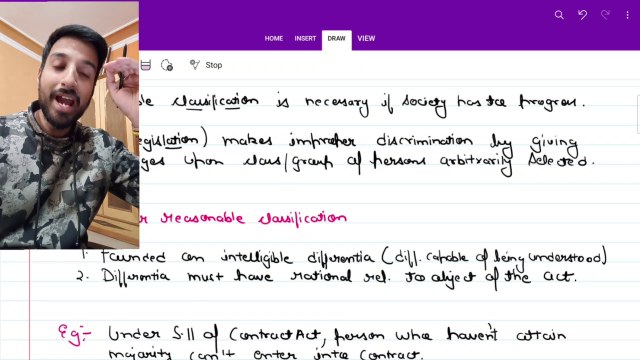 HOME INSERT DRAW VIEW
Stop
ble classification is necessary if society has to progress.
egislation) makes improper discrimination by giving
ges upon class/group of persons arbitrarily selected.
r reasonable classification
1. Founded on intelligible differentia (diff. capable of being understood)
2. Differentia must have rational rel. to object of the act.
Eg:- Under S.11 of Contract Act, person who haven't attain
majority can't enter into contract.